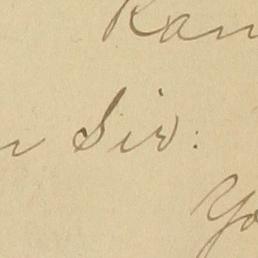 Kan
n Sir:
Yo